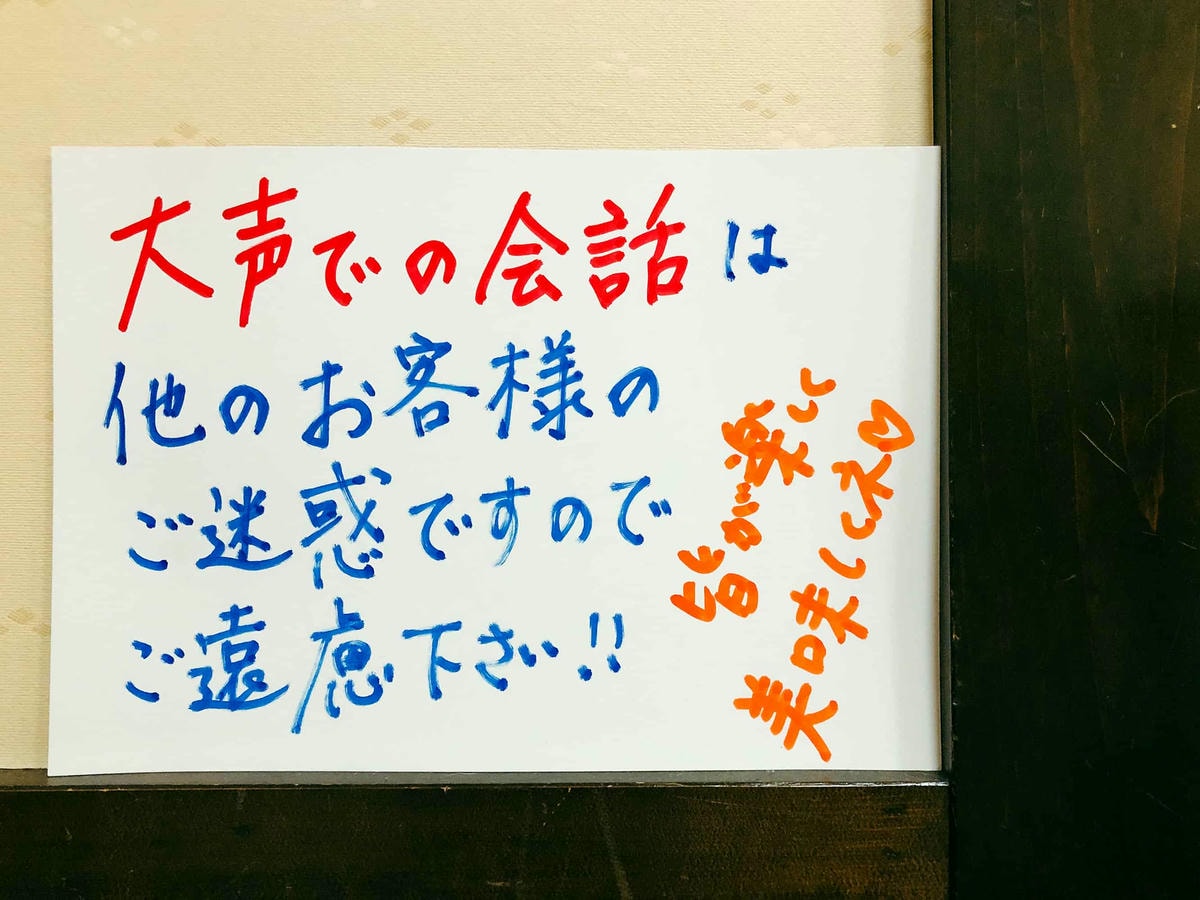 大声での会話は
他のお客様の
ご迷惑ですので
ご遠慮下さい!!
皆が楽しく
美味しくネ♡